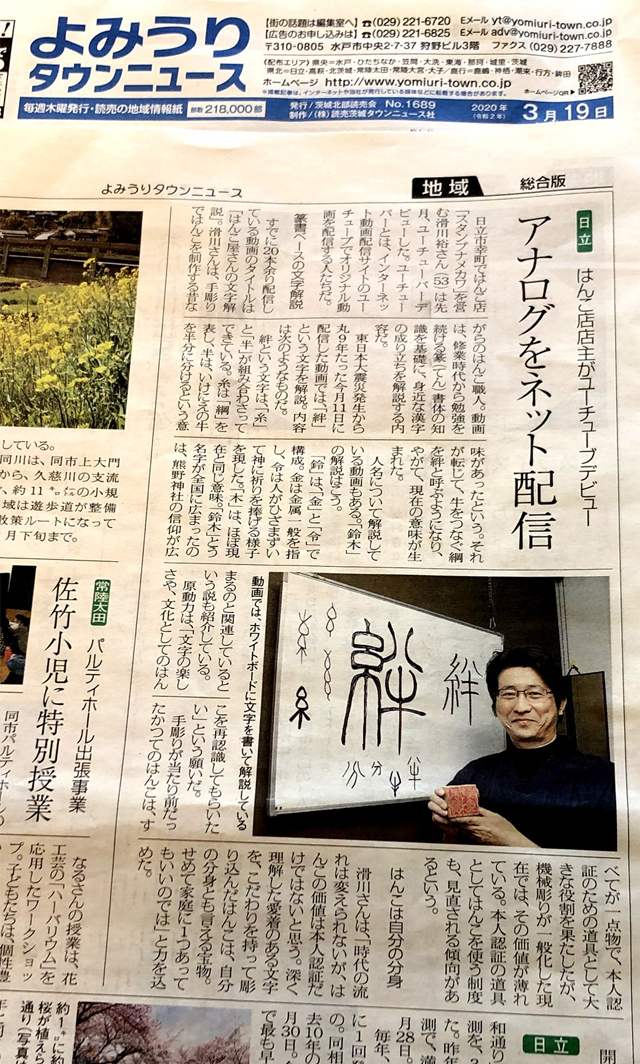 よみうり
タウンニュース
【街の話題は編集室へ】☎(029)221-6720 Eメール yt@yomiuri-town.co.jp
【広告のお申し込みは】☎(029)221-6825 Eメール adv@yomiuri-town.co.jp
〒310-0805 水戸市中央2-7-37 狩野ビル3階 ファクス (029)227-7888
(配布エリア) 県央=水戸・ひたちなか・笠間・大洗・東海・那珂・城里・茨城
県北=日立・高萩・北茨城・常陸太田・常陸大宮・大子/鹿行=鹿嶋・神栖・潮来・行方・鉾田
ホームページ http://www.yomiuri-town.co.jp
ホームページQR▶
毎週木曜発行・読売の地域情報紙
部数 218,000部
発行/茨城北部読売会 No.1689
制作/(株)読売茨城タウンニュース社
2020年
(令和2年)
3月19日
よみうりタウンニュース
地域
総合版
日立
はんこ店店主がユーチューブデビュー
アナログをネット配信
日立市幸町ではんこ店
「スタンプナメカワ」を営
む滑川裕さん(53)は先
月、ユーチューバーデ
ビューした。ユーチュー
バーとは、インターネッ
ト動画配信サイトのユー
チューブでオリジナル動
画を配信する人たちだ。
篆書ベースの文字解説
すでに20本余り配信し
ている動画のタイトルは
「はんこ屋さんの文字解
説」。滑川さんは、手彫り
ではんこを制作する昔な
がらのはんこ職人。動画
は、修業時代から勉強を
続ける篆(てん)書体の知
識を基礎に、身近な漢字
の成り立ちを解説する内
容だ。
東日本大震災発生から
丸9年たった今月11日に
配信した動画では、「絆」
という文字を解説。内容
は次のようなものだ。
絆という文字は、「糸」
と「半」が組み合わさって
できている。糸は「綱」を
表し、半は、いけにえの牛
を半分に分けるという意
味があったという。それ
が転じて、牛をつなぐ綱
を絆と呼ぶようになり、
やがて、現在の意味が生
まれた。
人名について解説して
いる動画もある。「鈴木」
の解説はこう。
「鈴」は、「金」と「令」で
構成。金は金属一般を指
し、令は人がひざまずい
て神に祈りを捧げる様子
を現した。「木」は、ほぼ現
在と同じ意味。鈴木という
名字が全国に広まったの
は、熊野神社の信仰が広
まるのと関連していると
いう説も紹介している。
原動力は、「文字の楽し
さや、文化としてのはん
こを再認識してもらいた
い」という願いだ。
手彫りが当たり前だっ
たかつてのはんこは、す
動画では、ホワイトボードに文字を書いて解説している
絆
べてが一点物で、本人認
証のための道具として大
きな役割を果たしたが、
機械彫りが一般化した現
在では、その価値が薄れ
ている。本人認証の道具
としてはんこを使う制度
も、見直される傾向があ
るという。
はんこは自分の分身
滑川さんは、「時代の流
れは変えられないが、は
んこの価値は本人認証だ
けではないと思う。深く
理解した愛着のある文字
を、こだわりを持って彫
り込んだはんこは、自分
の分身とも言える宝物。
せめて家庭に1つあって
もいいのでは」と力を込
めた。
している。
同川は、同市上大門
から、久慈川の支流
、約11㌔の小規
域は遊歩道が整備
散策ルートになって
月下旬まで。
常陸太田
パルティホール出張事業
佐竹小児に特別授業
同市パルティホールの
なるさんの授業は、花
工芸の「ハーバリウム」を
応用したワークショッ
プ。子どもたちは、個性豊
日立